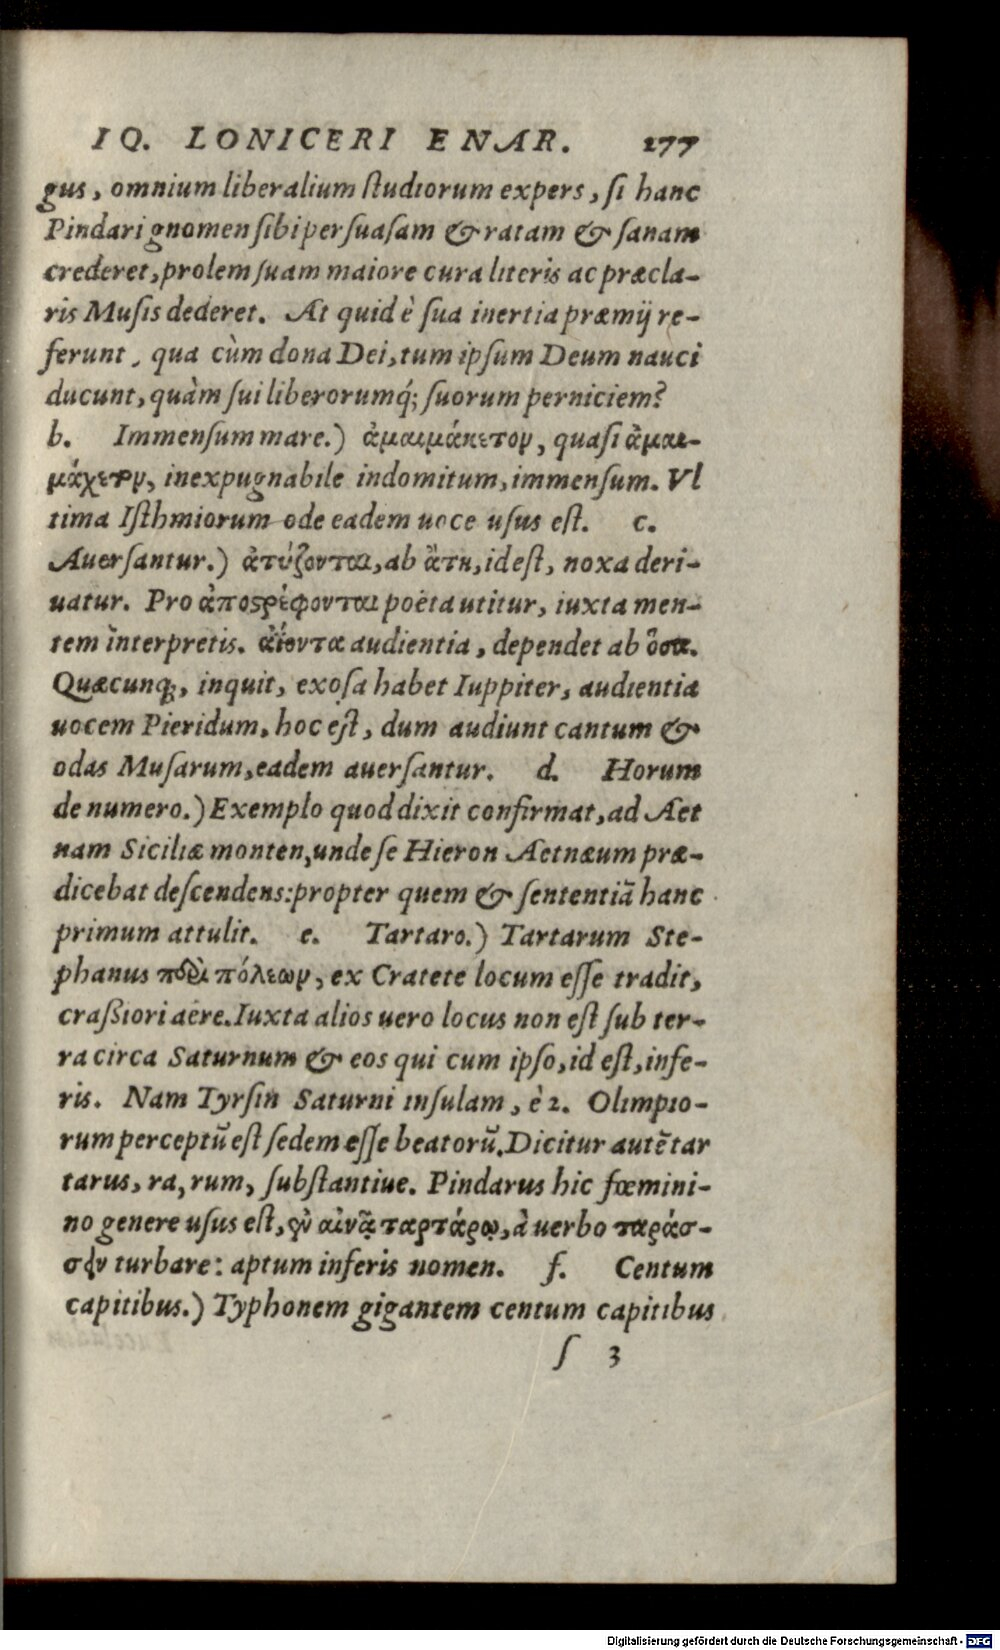 IO. LONICERI ENAR. 277
gus, omnium liberalium ſtudiorum expers, ſi hanc
Pindari gnomen ſibi perſuaſam & ratam & ſanam
crederet, prolem ſuam maiore cura literis ac præcla-
ris Muſis dederet. At quid è ſua inertia præmij re-
ferunt, qua cùm dona Dei, tum ipſum Deum nauci
ducunt, quàm ſui liberorumq́; ſuorum perniciem?
b. Immenſum mare.) ἀμαιμάκετον, quaſi ἀμαι-
μάχετον, inexpugnabile indomitum, immenſum. Vl
tima Iſthmiorum ode eadem uoce uſus eſt. c.
Auerſantur.) ἀτύζονται, ab ἄτη, id eſt, noxa deri-
uatur. Pro ἀποςρέφονται poëta utitur, iuxta men-
tem interpretis. ἀΐοντα audientia, dependet ab ὅσα.
Quæcunq;, inquit, exoſa habet Iuppiter, audientia
uocem Pieridum, hoc eſt, dum audiunt cantum &
odas Muſarum, eadem auerſantur. d. Horum
de numero.) Exemplo quod dixit confirmat, ad Aet
nam Siciliæ monten, unde ſe Hieron Aetnæum præ-
dicebat deſcendens: propter quem & ſententiã hanc
primum attulit. e. Tartaro.) Tartarum Ste-
phanus περὶ πόλεων, ex Cratete locum eſſe tradit,
craßiori aëre. Iuxta alios uero locus non eſt ſub ter-
ra circa Saturnum & eos qui cum ipſo, id eſt, infe-
ris. Nam Tyrſin Saturni inſulam, è 2. Olimpio-
rum perceptũ eſt ſedem eſſe beatorũ. Dicitur autẽ tar
tarus, ra, rum, ſubſtantiue. Pindarus hic fœmini-
no genere uſus eſt, ἐν αἰνᾷ ταρτάρῳ, à uerbo ταράσ-
σειν turbare: aptum inferis nomen. f. Centum
capitibus.) Typhonem gigantem centum capitibus
ſ 3
Digitalisierung gefördert durch die Deutsche Forschungsgemeinschaft - DFG